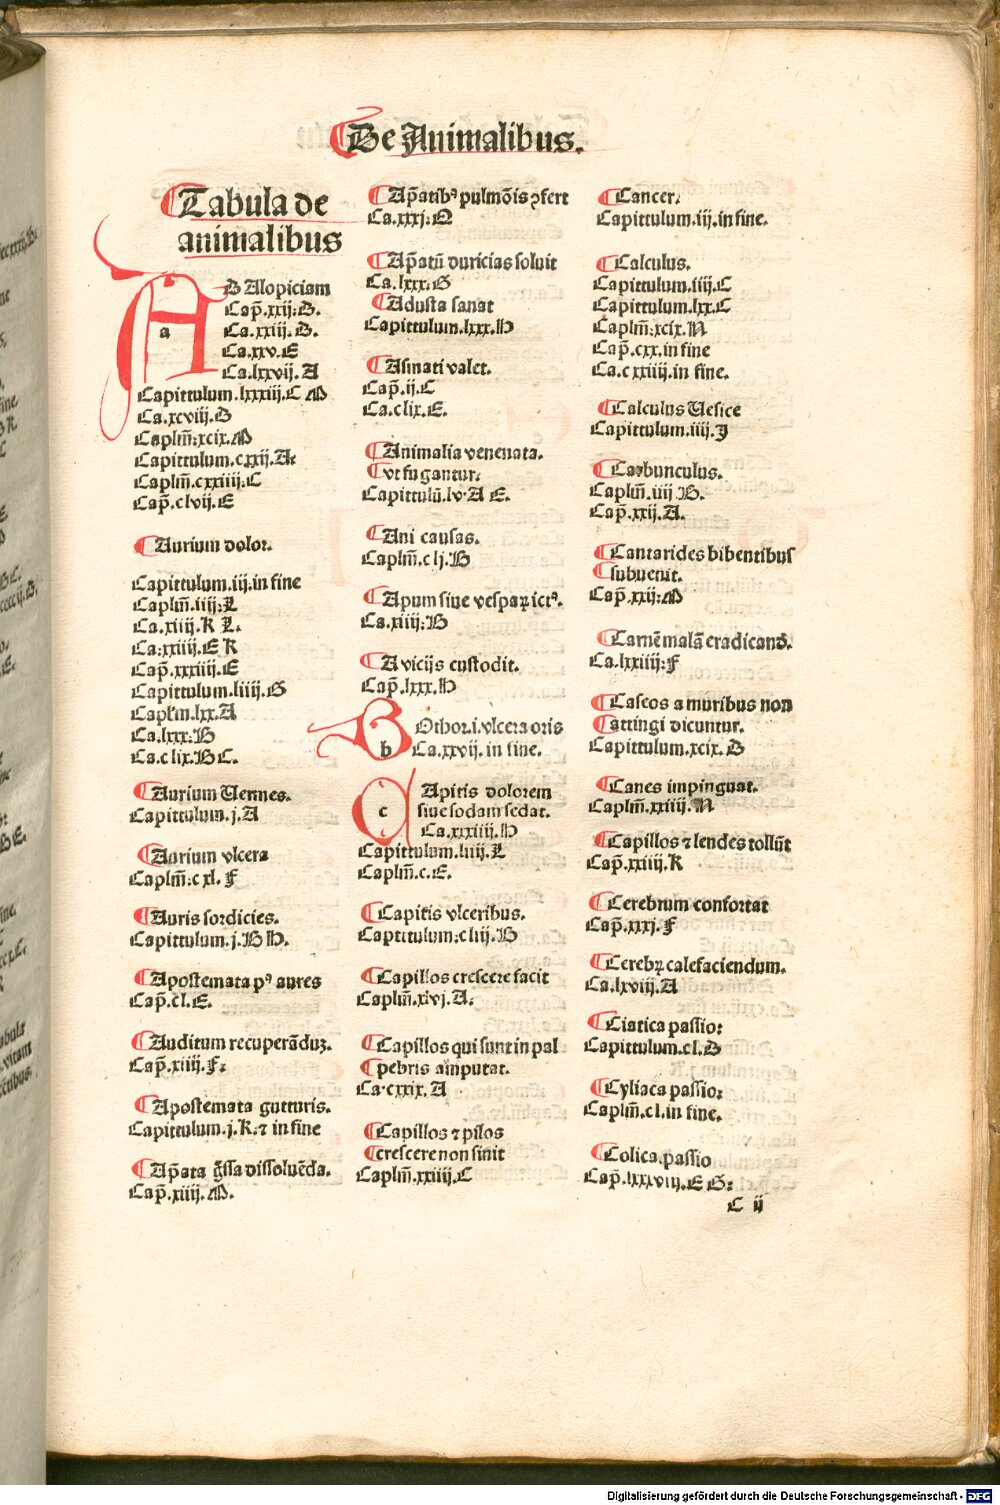 De Animalibus.
Tabula de
animalibus
AD Alopiciam
a
Cap̄.xxij:B.
Ca.xxiij.B.
Ca.xxv.E
Ca.lxxvij.A
Capittulum.lxxxiij.C M
Ca.xcviij.D
Caplm̄:xcix.M
Capittulum.cxxij.A:
Caplm̄.cxxiiij.C
Cap̄.clvij.E
Aurium dolor.
Capittulum.iij.in fine
Caplm̄.iiij:L
Ca.xiiij.K L.
Ca:xxiiij.E K
Cap̄.xxxiiij.E
Capittulum.liiij.G
Caplm̄.lxx.A
Ca.lxxx:H
Ca.clix.B C.
Aurium Uermes.
Capittulum.j.A
Aurium vlcera
Caplm̄:cxl.F
Auris sordicies.
Capittulum.j.B H.
Apostemata pꝰ aures
Cap̄.cl.E.
Auditum recuperāduꝫ.
Cap̄.xiiij.F:
Apostemata gutturis.
Capittulum.j.K:⁊ in fine
Ap̄ata g̃ssa dissoluēda.
Cap̄.xiiij.M.
Ap̄atibꝰ pulmōis ꝯfert
Ca.xxxj:N
Ap̄atū duricias soluit
Ca.lxxx.G
Adusta sanat
Capittulum.lxxx.H
Asmati valet.
Cap̄.ij.C
Ca.clix.E.
Animalia venenata.
vt fugantur:
Capittulū.lv.A E.
Ani causas.
Caplm̄.clj.B
Apum siue vespaꝝ ictꝰ.
Ca.xiiij:B
A vicijs custodit.
Cap̄.lxxx.H
BOthor.i.vlcera oris
b
Ca.xxvij.in fine.
CApitis dolorem
c
siue sodam sedat.
Ca.xxxiiij.H
Capittulum.liiij.L
Caplm̄.c.E.
Capitis vlceribus.
Capittulum:cliij.B
Capillos crescere facit
Caplm̄.xlvj.A:
Capillos qui sunt in pal
pebris amputat.
Ca.cxxix.A
Capillos ⁊ pilos
crescere non sinit
Caplm̄.xxiiij.C
Cancer.
Capittulum.iij.in fine.
Calculus.
Capittulum.iiij.C
Capittulum.lxx.C
Caplm̄:xcix.N
Cap̄.cxx.in fine
Ca.cxxiiij.in fine.
Calculus Uesice
Capittulum.iiij.I
Carbunculus.
Caplm̄.iiij.B.
Cap̄.xxij.A.
Cantarides bibentibus
subuenit.
Cap̄.xxij:M
Carnē malā eradicand̄.
Ca.lxxiiij:F
Caseos a muribus non
attingi dicuntur.
Capittulum.xcix.D
Canes impinguat.
Caplm̄.xxiiij.N
Capillos ⁊ lendes tollūt
Cap̄.xxiiij.K
Cerebrum confortat
Cap̄.xxxj.F
Cerebꝝ calefaciendum.
Ca.lxviij.A
Ciatica passio:
Capittulum.cl.D
Cyliaca passio:
Caplm̄.cl.in fine.
Colica.passio
Cap̄.lxxxviij.E G:
C ij
Digitalisierung gefördert durch die Deutsche Forschungsgemeinschaft - DFG